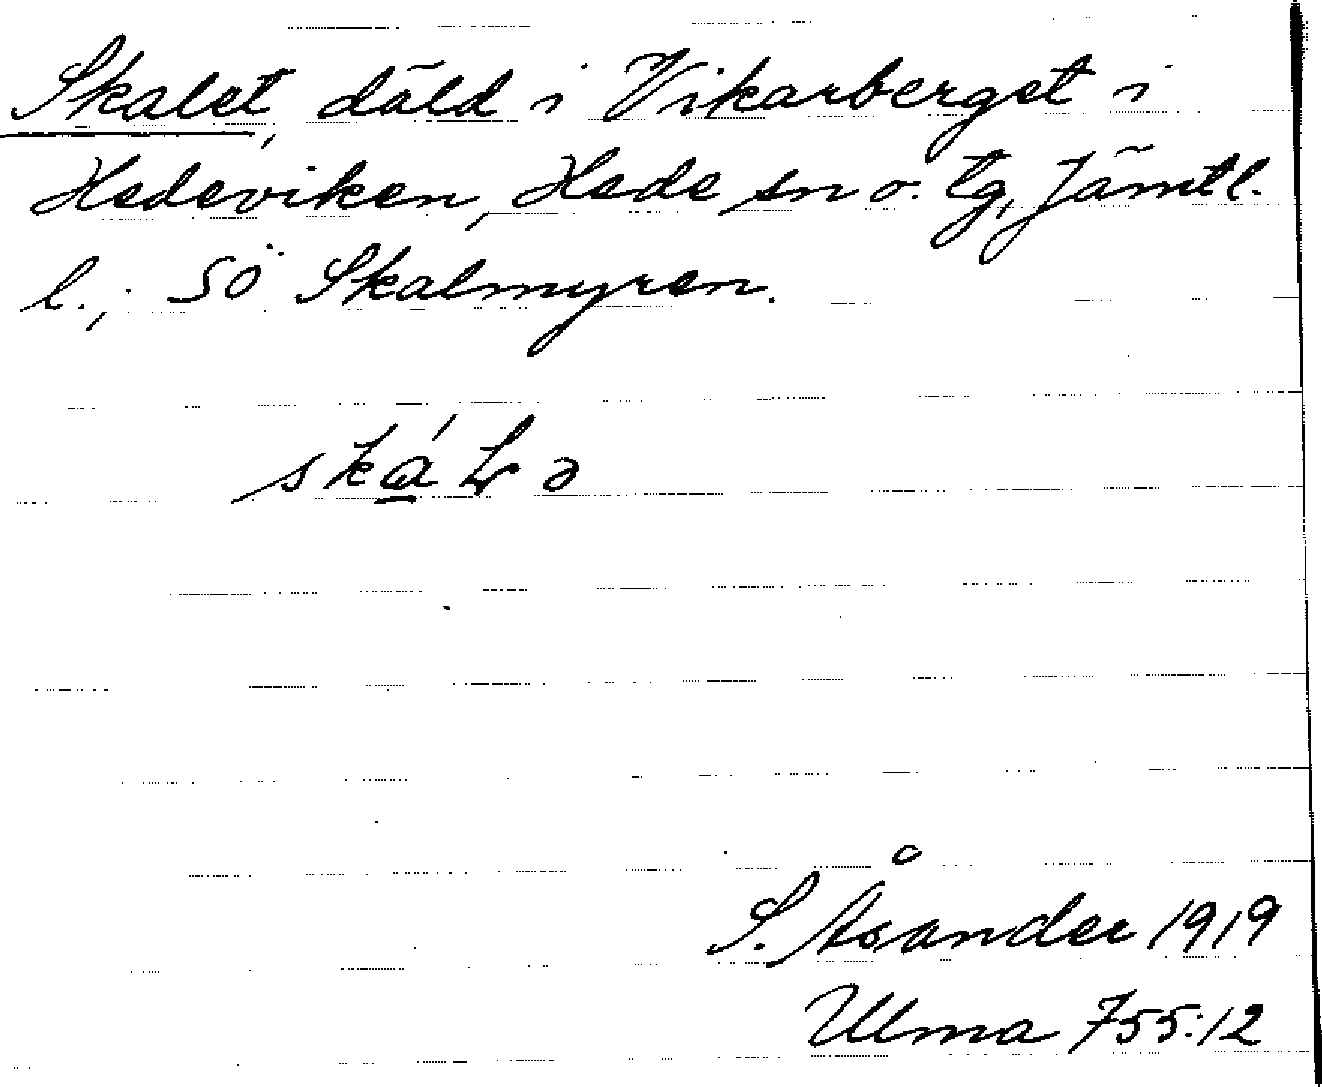 Skalet, däld i Vikarberget i
Hedeviken, Hede sn o. tg, Jämtl.
l.; SÖ Skalmyren.
skáLə
S. Åsander 1919
Ulma 755:12